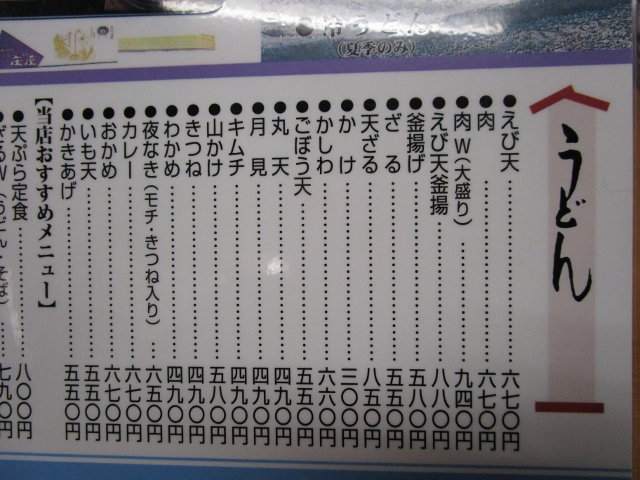 庄屋
●冷うどん
(夏季のみ)
うどん
●えび天…………六七〇円
●肉…………六七〇円
●肉W(大盛り)…………九四〇円
●えび天釜揚…………八八〇円
●釜揚げ…………五八〇円
●ざる…………五五〇円
●天ざる…………八五〇円
●かけ…………三〇〇円
●かしわ…………六六〇円
●ごぼう天…………五五〇円
●丸天…………四九〇円
●月見…………四九〇円
●キムチ…………四九〇円
●山かけ…………五八〇円
●きつね…………四九〇円
●わかめ…………四九〇円
●夜なき(モチ・きつね入り)……六五〇円
●カレー…………六七〇円
●おかめ…………六七〇円
●いも天…………五五〇円
●かきあげ…………五五〇円
【当店おすすめメニュー】
●天ぷら定食…………八〇〇円
●ざるW(うどん・そば)……七九〇円